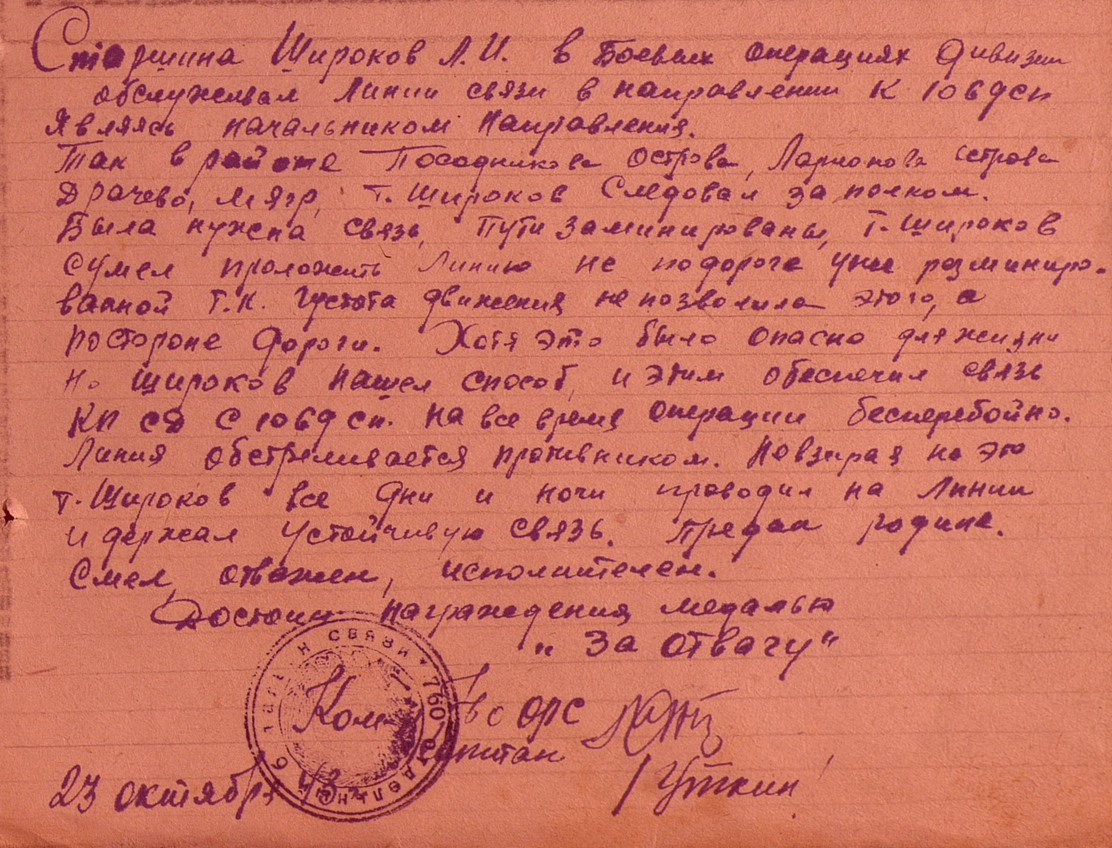 Старшина Широков Л.И. в боевых операциях дивизии
обслуживал Линии связи в направлении к 106 дсп
Являясь начальником Направления.
Так в районе Посадникова острова, Ларионова острова
Драчево, Мягр, т. Широков Следовал за полком.
Была нужна связь, пути заминированы, т. Широков
сумел проложить Линию не подороге уже розминиро-
ванной т.к. густота движения не позволила этого, а
постороне дороги. Хотя это было опасно для жизни
но Широков нашел способ, и этим обеспечил связь
КП СД с 106 дсп. на все время операции бесперебойно.
Линия обстреливается противником. Невзирая на это
т. Широков все дни и ночи проводил на Линии
и держал устойчивую связь. Предан родине.
Смел, отважен, исполнителен.
Достоин награждения медалью
"За отвагу"
Ком ОРС
капитан
/Уткин/
23 октября 43 г.
760 ОТДЕЛЬНЫЙ СВЯЗИ